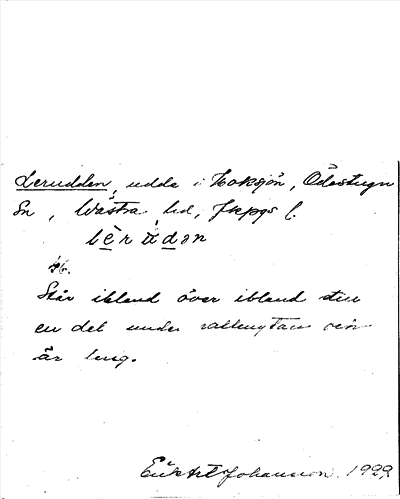 Lerudden, udde i Hoksjön, Ödestugu
Sn, Västra hd, Jkpgs l.
lèrùdən
Står ibland över ibland still
en del under vattenytan och
är lerig.
Johansson 1929